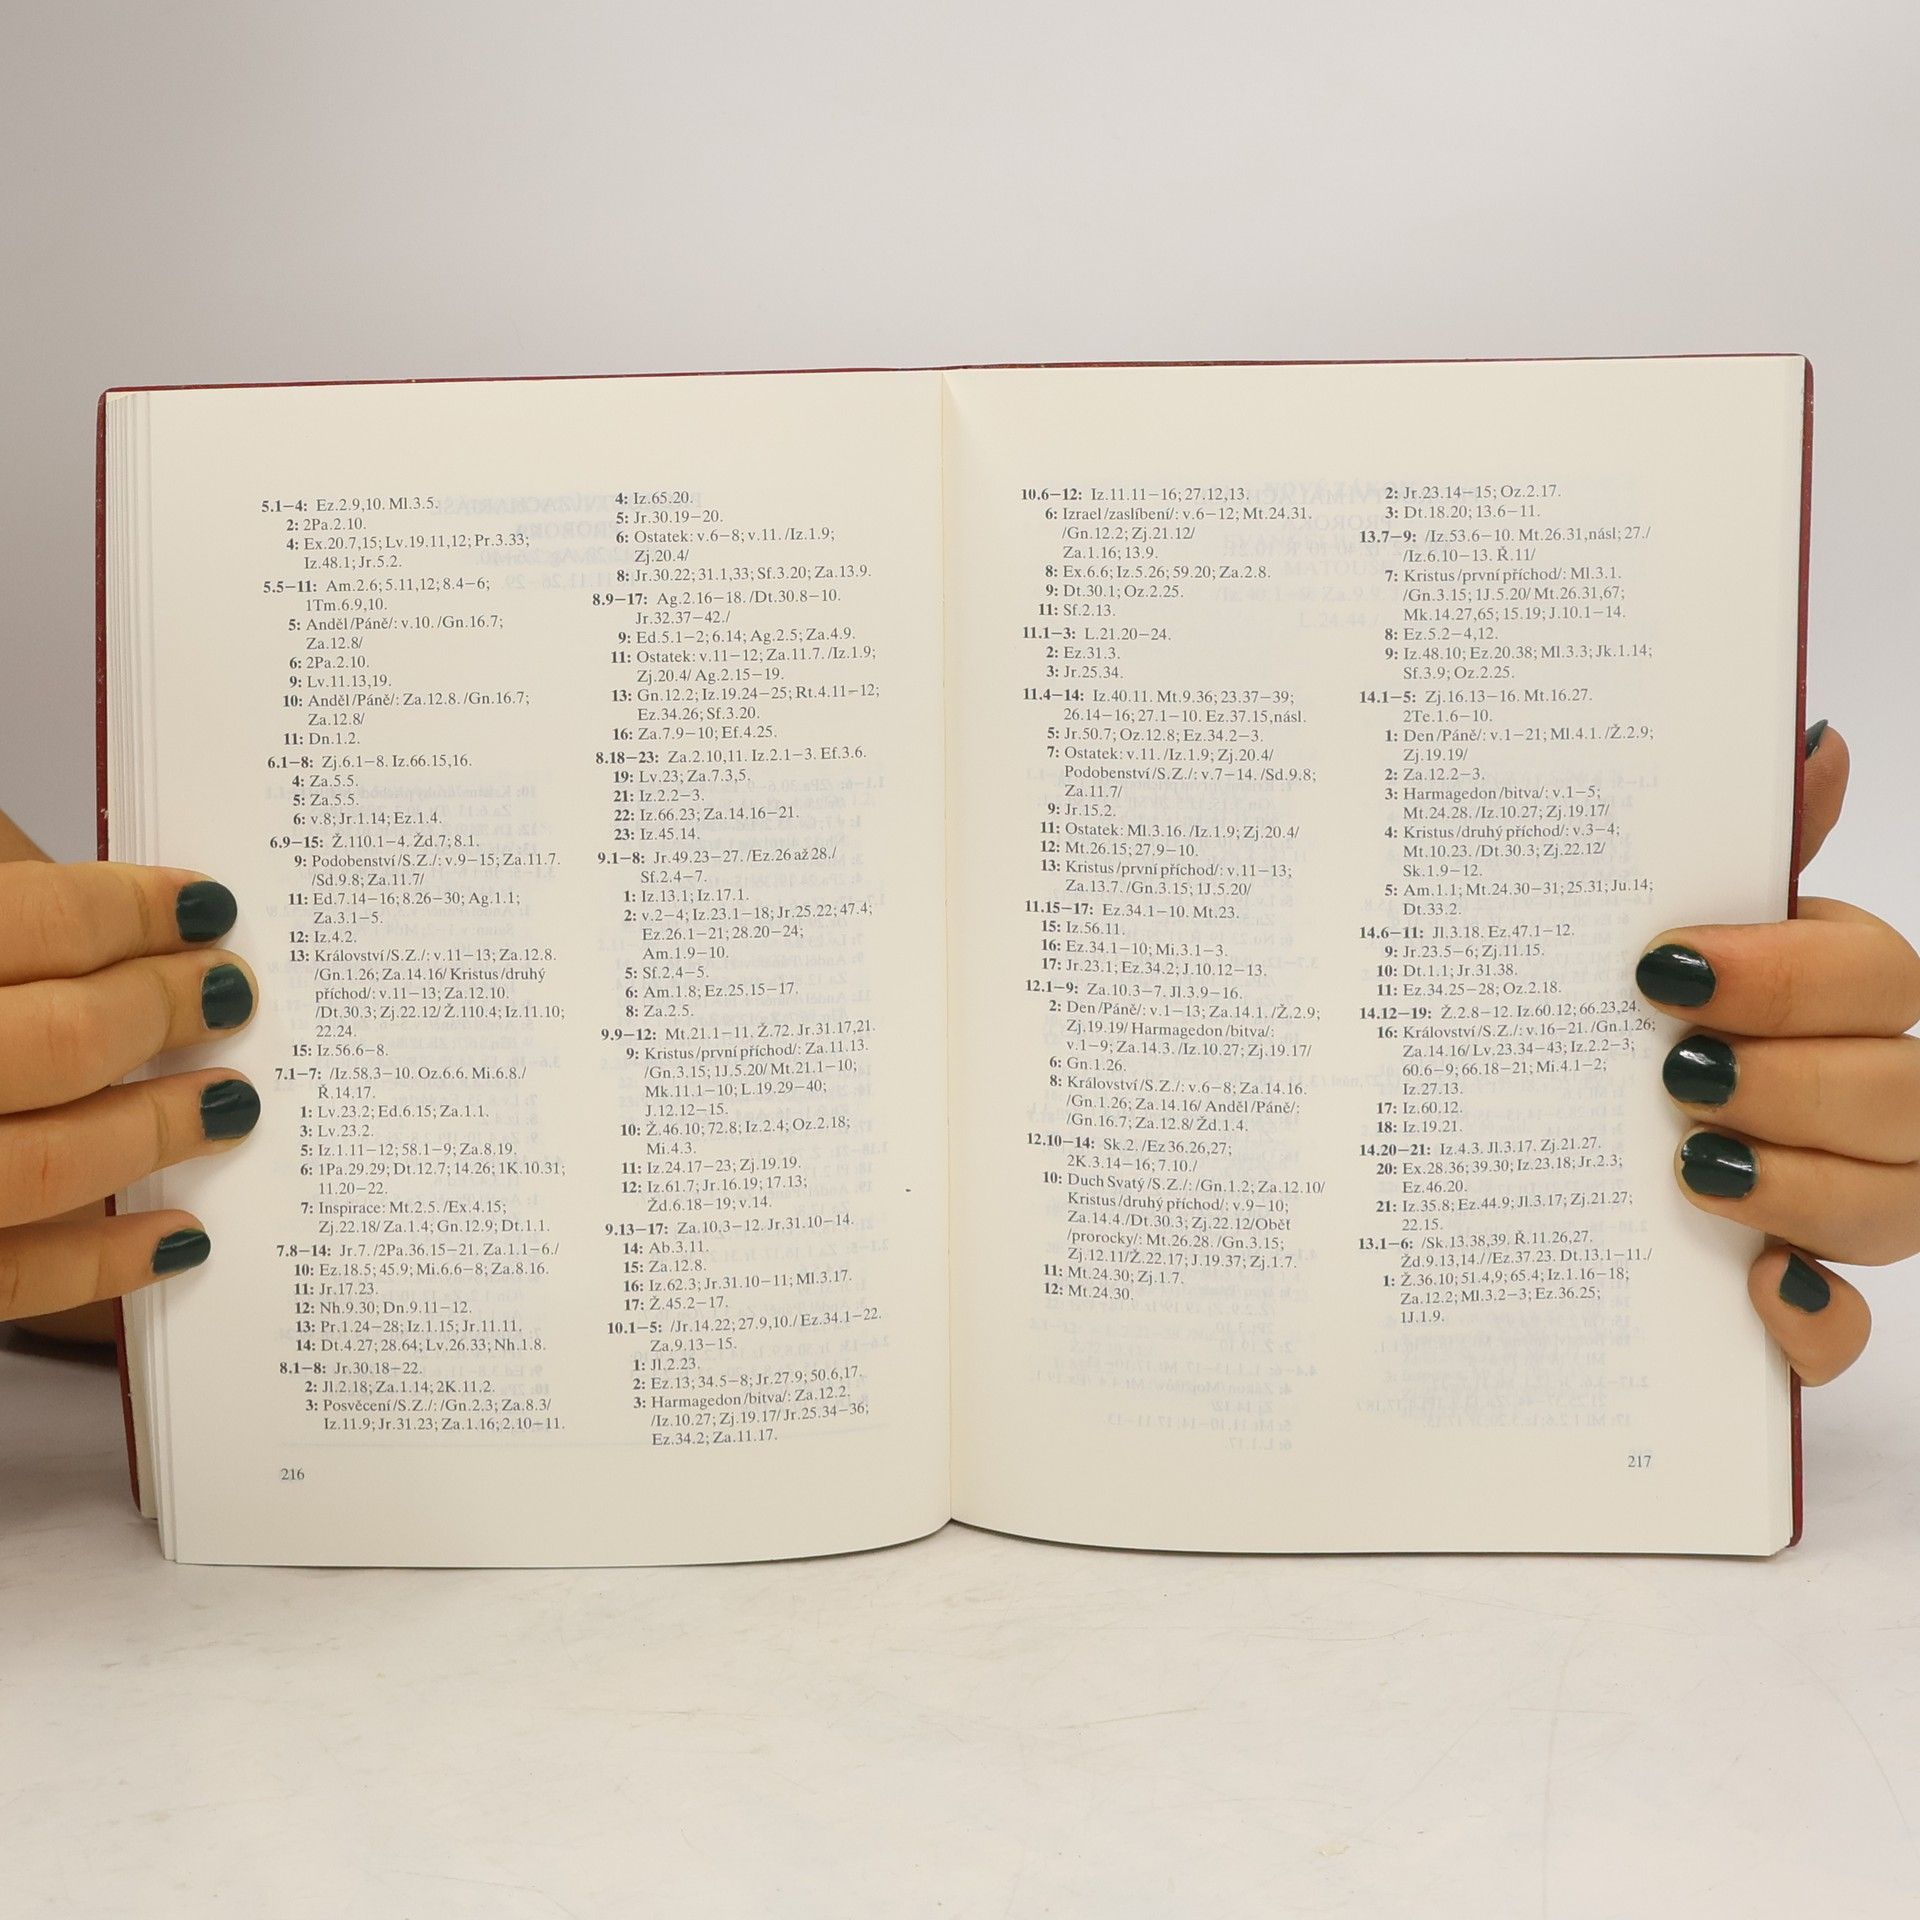 5.1–4: Ez.2.9,10. Ml.3.5.
2: 2Pa.2.10.
4: Ex.20.7,15; Lv.19.11,12; Pr.3.33;
Iz.48.1; Jr.5.2.
5.5–11: Am.2.6; 5.11,12; 8.4–6;
1Tm.6.9,10.
5: Anděl /Páně/: v.10. /Gn.16.7;
Za.12.8/
6: 2Pa.2.10.
9: Lv.11.13,19.
10: Anděl /Páně/: Za.12.8. /Gn.16.7;
Za.12.8/
11: Dn.1.2.
6.1–8: Zj.6.1–8. Iz.66.15,16.
4: Za.5.5.
5: Za.5.5.
6: v.8; Jr.1.14; Ez.1.4.
6.9–15: Ž.110.1–4. Žd.7; 8.1.
9: Podobenství /S.Z./: v.9–15; Za.11.7.
/Sd.9.8; Za.11.7/
11: Ed.7.14–16; 8.26–30; Ag.1.1;
Za.3.1–5.
12: Iz.4.2.
13: Království /S.Z./: v.11–13; Za.12.8.
/Gn.1.26; Za.14.16/ Kristus /druhý
příchod/: v.11–13; Za.12.10.
/Dt.30.3; Zj.22.12/ Ž.110.4; Iz.11.10;
22.24.
15: Iz.56.6–8.
7.1–7: /Iz.58.3–10. Oz.6.6. Mi.6.8./
Ř.14.17.
1: Lv.23.2; Ed.6.15; Za.1.1.
3: Lv.23.2.
5: Iz.1.11–12; 58.1–9; Za.8.19.
6: 1Pa.29.29; Dt.12.7; 14.26; 1K.10.31;
11.20–22.
7: Inspirace: Mt.2.5. /Ex.4.15;
Zj.22.18/ Za.1.4; Gn.12.9; Dt.1.1.
7.8–14: Jr.7. /2Pa.36.15–21. Za.1.1–6./
10: Ez.18.5; 45.9; Mi.6.6–8; Za.8.16.
11: Jr.17.23.
12: Nh.9.30; Dn.9.11–12.
13: Pr.1.24–28; Iz.1.15; Jr.11.11.
14: Dt.4.27; 28.64; Lv.26.33; Nh.1.8.
8.1–8: Jr.30.18–22.
2: Jl.2.18; Za.1.14; 2K.11.2.
3: Posvěcení /S.Z./: /Gn.2.3; Za.8.3/
Iz.11.9; Jr.31.23; Za.1.16; 2.10–11.
4: Iz.65.20.
5: Jr.30.19–20.
6: Ostatek: v.6–8; v.11. /Iz.1.9;
Zj.20.4/
8: Jr.30.22; 31.1,33; Sf.3.20; Za.13.9.
8.9–17: Ag.2.16–18. /Dt.30.8–10.
Jr.32.37–42./
9: Ed.5.1–2; 6.14; Ag.2.5; Za.4.9.
11: Ostatek: v.11–12; Za.11.7. /Iz.1.9;
Zj.20.4/ Ag.2.15–19.
13: Gn.12.2; Iz.19.24–25; Rt.4.11–12;
Ez.34.26; Sf.3.20.
16: Za.7.9–10; Ef.4.25.
8.18–23: Za.2.10,11. Iz.2.1–3. Ef.3.6.
19: Lv.23; Za.7.3,5.
21: Iz.2.2–3.
22: Iz.66.23; Za.14.16–21.
23: Iz.45.14.
9.1–8: Jr.49.23–27. /Ez.26 až 28./
Sf.2.4–7.
1: Iz.13.1; Iz.17.1.
2: v.2–4; Iz.23.1–18; Jr.25.22; 47.4;
Ez.26.1–21; 28.20–24;
Am.1.9–10.
5: Sf.2.4–5.
6: Am.1.8; Ez.25.15–17.
8: Za.2.5.
9.9–12: Mt.21.1–11. Ž.72. Jr.31.17,21.
9: Kristus /první příchod/: Za.11.13.
/Gn.3.15; 1J.5.20/ Mt.21.1–10;
Mk.11.1–10; L.19.29–40;
J.12.12–15.
10: Ž.46.10; 72.8; Iz.2.4; Oz.2.18;
Mi.4.3.
11: Iz.24.17–23; Zj.19.19.
12: Iz.61.7; Jr.16.19; 17.13;
Žd.6.18–19; v.14.
9.13–17: Za.10.3–12. Jr.31.10–14.
14: Ab.3.11.
15: Za.12.8.
16: Iz.62.3; Jr.31.10–11; Ml.3.17.
17: Ž.45.2–17.
10.1–5: /Jr.14.22; 27.9,10./ Ez.34.1–22.
Za.9.13–15.
1: Jl.2.23.
2: Ez.13; 34.5–8; Jr.27.9; 50.6,17.
3: Harmagedon /bitva/: Za.12.2.
/Iz.10.27; Zj.19.17/ Jr.25.34–36;
Ez.34.2; Za.11.17.
216
10.6–12: Iz.11.11–16; 27.12,13.
6: Izrael /zaslíbení/: v.6–12; Mt.24.31.
/Gn.12.2; Zj.21.12/
Za.1.16; 13.9.
8: Ex.6.6; Iz.5.26; 59.20; Za.2.8.
9: Dt.30.1; Oz.2.25.
11: Sf.2.13.
11.1–3: L.21.20–24.
2: Ez.31.3.
3: Jr.25.34.
11.4–14: Iz.40.11. Mt.9.36; 23.37–39;
26.14–16; 27.1–10. Ez.37.15,násl.
5: Jr.50.7; Oz.12.8; Ez.34.2–3.
7: Ostatek: v.11. /Iz.1.9; Zj.20.4/
Podobenství /S.Z./: v.7–14. /Sd.9.8;
Za.11.7/
9: Jr.15.2.
11: Ostatek: Ml.3.16. /Iz.1.9; Zj.20.4/
12: Mt.26.15; 27.9–10.
13: Kristus /první příchod/: v.11–13;
Za.13.7. /Gn.3.15; 1J.5.20/
11.15–17: Ez.34.1–10. Mt.23.
15: Iz.56.11.
16: Ez.34.1–10; Mi.3.1–3.
17: Jr.23.1; Ez.34.2; J.10.12–13.
12.1–9: Za.10.3–7. Jl.3.9–16.
2: Den /Páně/: v.1–13; Za.14.1. /Ž.2.9;
Zj.19.19/ Harmagedon /bitva/:
v.1–9; Za.14.3. /Iz.10.27; Zj.19.17/
6: Gn.1.26.
8: Království /S.Z./: v.6–8; Za.14.16.
/Gn.1.26; Za.14.16/ Anděl /Páně/:
/Gn.16.7; Za.12.8/ Žd.1.4.
12.10–14: Sk.2. /Ez 36.26,27;
2K.3.14–16; 7.10./
10: Duch Svatý /S.Z./: /Gn.1.2; Za.12.10/
Kristus /druhý příchod/: v.9–10;
Za.14.4. /Dt.30.3; Zj.22.12/ Oběť
/prorocky/: Mt.26.28. /Gn.3.15;
Zj.12.11/ Ž.22.17; J.19.37; Zj.1.7.
11: Mt.24.30; Zj.1.7.
12: Mt.24.30.
2: Jr.23.14–15; Oz.2.17.
3: Dt.18.20; 13.6–11.
13.7–9: /Iz.53.6–10. Mt.26.31,násl; 27./
/Iz.6.10–13. Ř.11/
7: Kristus /první příchod/: Ml.3.1.
/Gn.3.15; 1J.5.20/ Mt.26.31,67;
Mk.14.27,65; 15.19; J.10.1–14.
8: Ez.5.2–4,12.
9: Iz.48.10; Ez.20.38; Ml.3.3; Jk.1.14;
Sf.3.9; Oz.2.25.
14.1–5: Zj.16.13–16. Mt.16.27.
2Te.1.6–10.
1: Den /Páně/: v.1–21; Ml.4.1. /Ž.2.9;
Zj.19.19/
2: Za.12.2–3.
3: Harmagedon /bitva/: v.1–5;
Mt.24.28. /Iz.10.27; Zj.19.17/
4: Kristus /druhý příchod/: v.3–4;
Mt.10.23. /Dt.30.3; Zj.22.12/
Sk.1.9–12.
5: Am.1.1; Mt.24.30–31; 25.31; Ju.14;
Dt.33.2.
14.6–11: Jl.3.18. Ez.47.1–12.
9: Jr.23.5–6; Zj.11.15.
10: Dt.1.1; Jr.31.38.
11: Ez.34.25–28; Oz.2.18.
14.12–19: Ž.2.8–12. Iz.60.12; 66.23,24.
16: Království /S.Z./: v.16–21. /Gn.1.26;
Za.14.16/ Lv.23.34–43; Iz.2.2–3;
60.6–9; 66.18–21; Mi.4.1–2;
Iz.27.13.
17: Iz.60.12.
18: Iz.19.21.
14.20–21: Iz.4.3. Jl.3.17. Zj.21.27.
20: Ex.28.36; 39.30; Iz.23.18; Jr.2.3;
Ez.46.20.
21: Iz.35.8; Ez.44.9; Jl.3.17; Zj.21.27;
22.15.
13.1–6: /Sk.13.38,39. Ř.11.26,27.
Žd.9.13,14./ /Ez.37.23. Dt.13.1–11./
1: Ž.36.10; 51.4,9; 65.4; Iz.1.16–18;
Za.12.2; Ml.3.2–3; Ez.36.25;
1J.1.9.
217